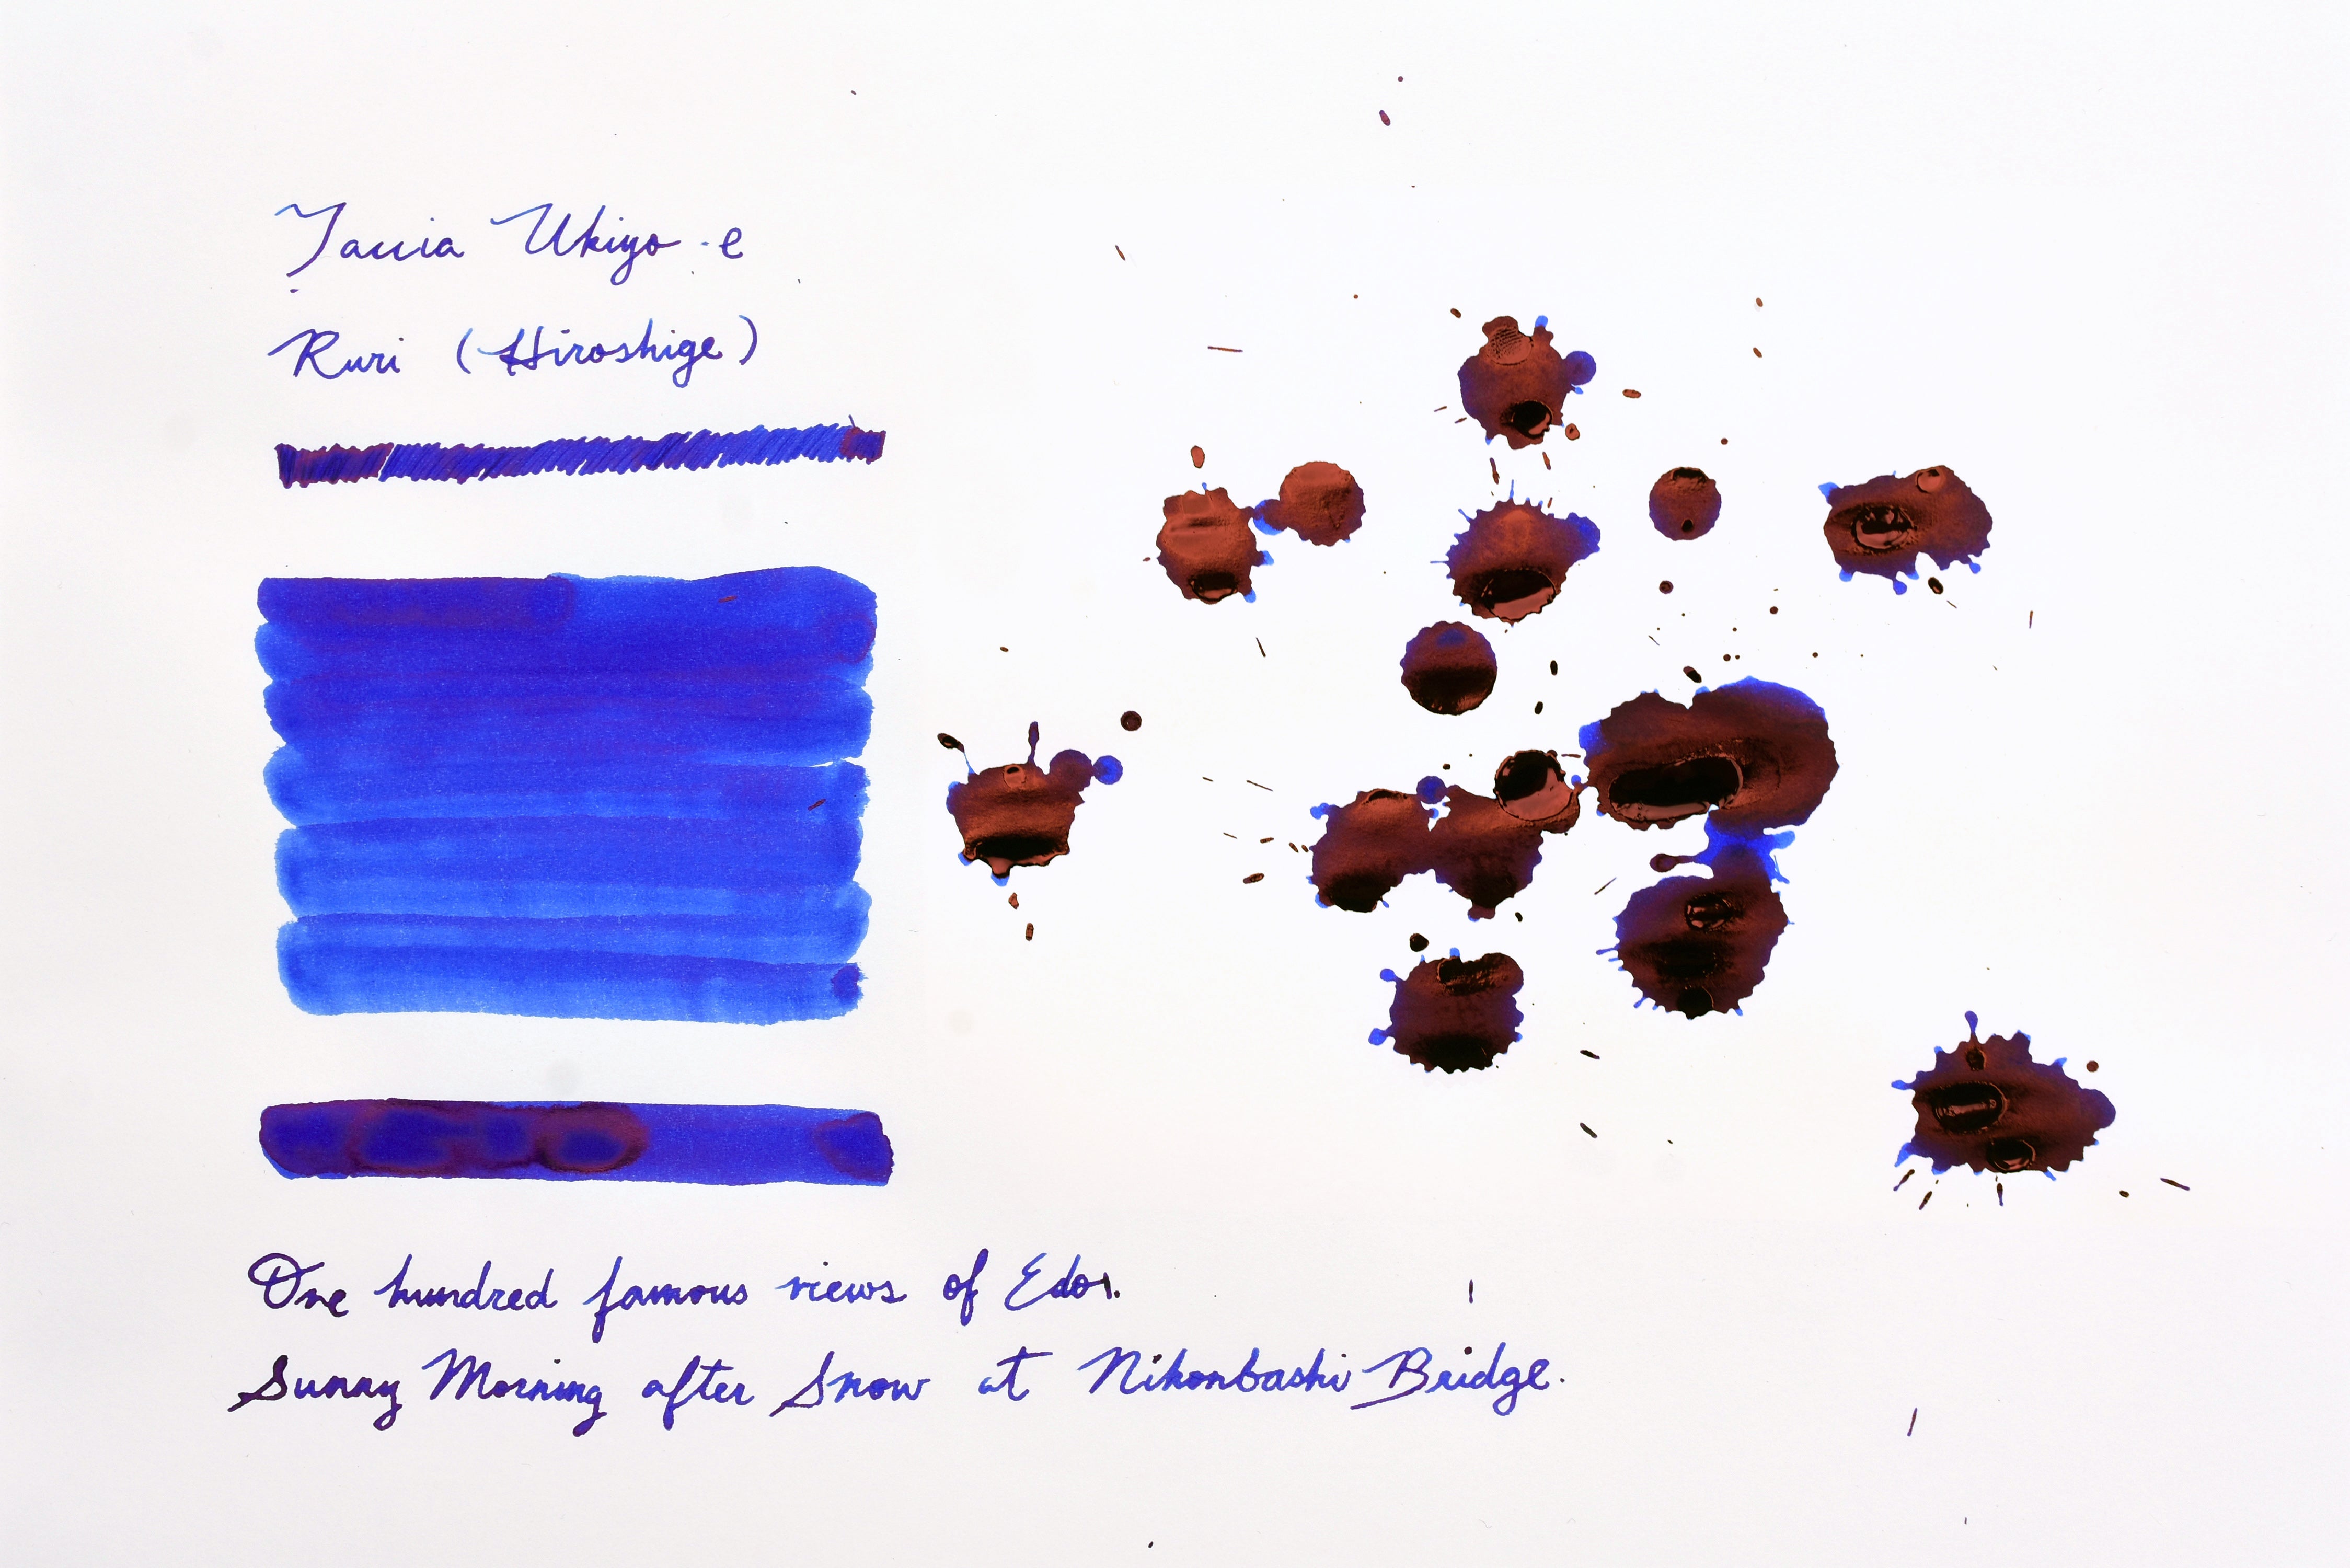 Taccia Ukiyo-e
Ruri (Hiroshige)
One hundred famous views of Edo.
Sunny Morning after Snow at Nihonbashi Bridge.